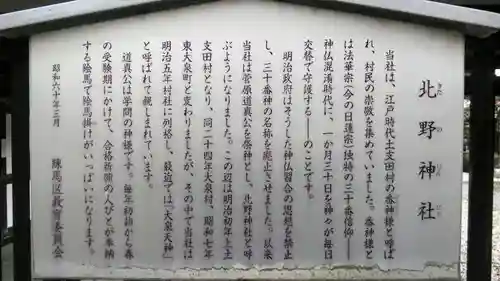 北野神社
きたのじんじゃ
当社は、江戸時代土支田村の番神様と呼ば
れ、村民の崇敬を集めていました。番神様と
は法華宗(今の日蓮宗)独特の三十番信仰―
神仏混淆時代に、一か月三十日を神々が毎日
交替で守護する――のことです。
明治政府はそうした神仏習合の思想を禁止
し、三十番神の名称を廃止させました。以来
当社は菅原道真公を祭神とし、北野神社と呼
ぶようになりました。この辺は明治初年上土
支田村となり、同二十四年大泉村、昭和七年
東大泉町と変わりましたが、その中で当社は
明治五年村社に列格し、最近では「大泉天神」
と呼ばれて親しまれています。
道真公は学問の神様です。毎年初詣から春
の受験期にかけて、合格祈願の人びとが奉納
する絵馬で絵馬掛けがいっぱいになります。
昭和六十年三月
練馬区教育委員会